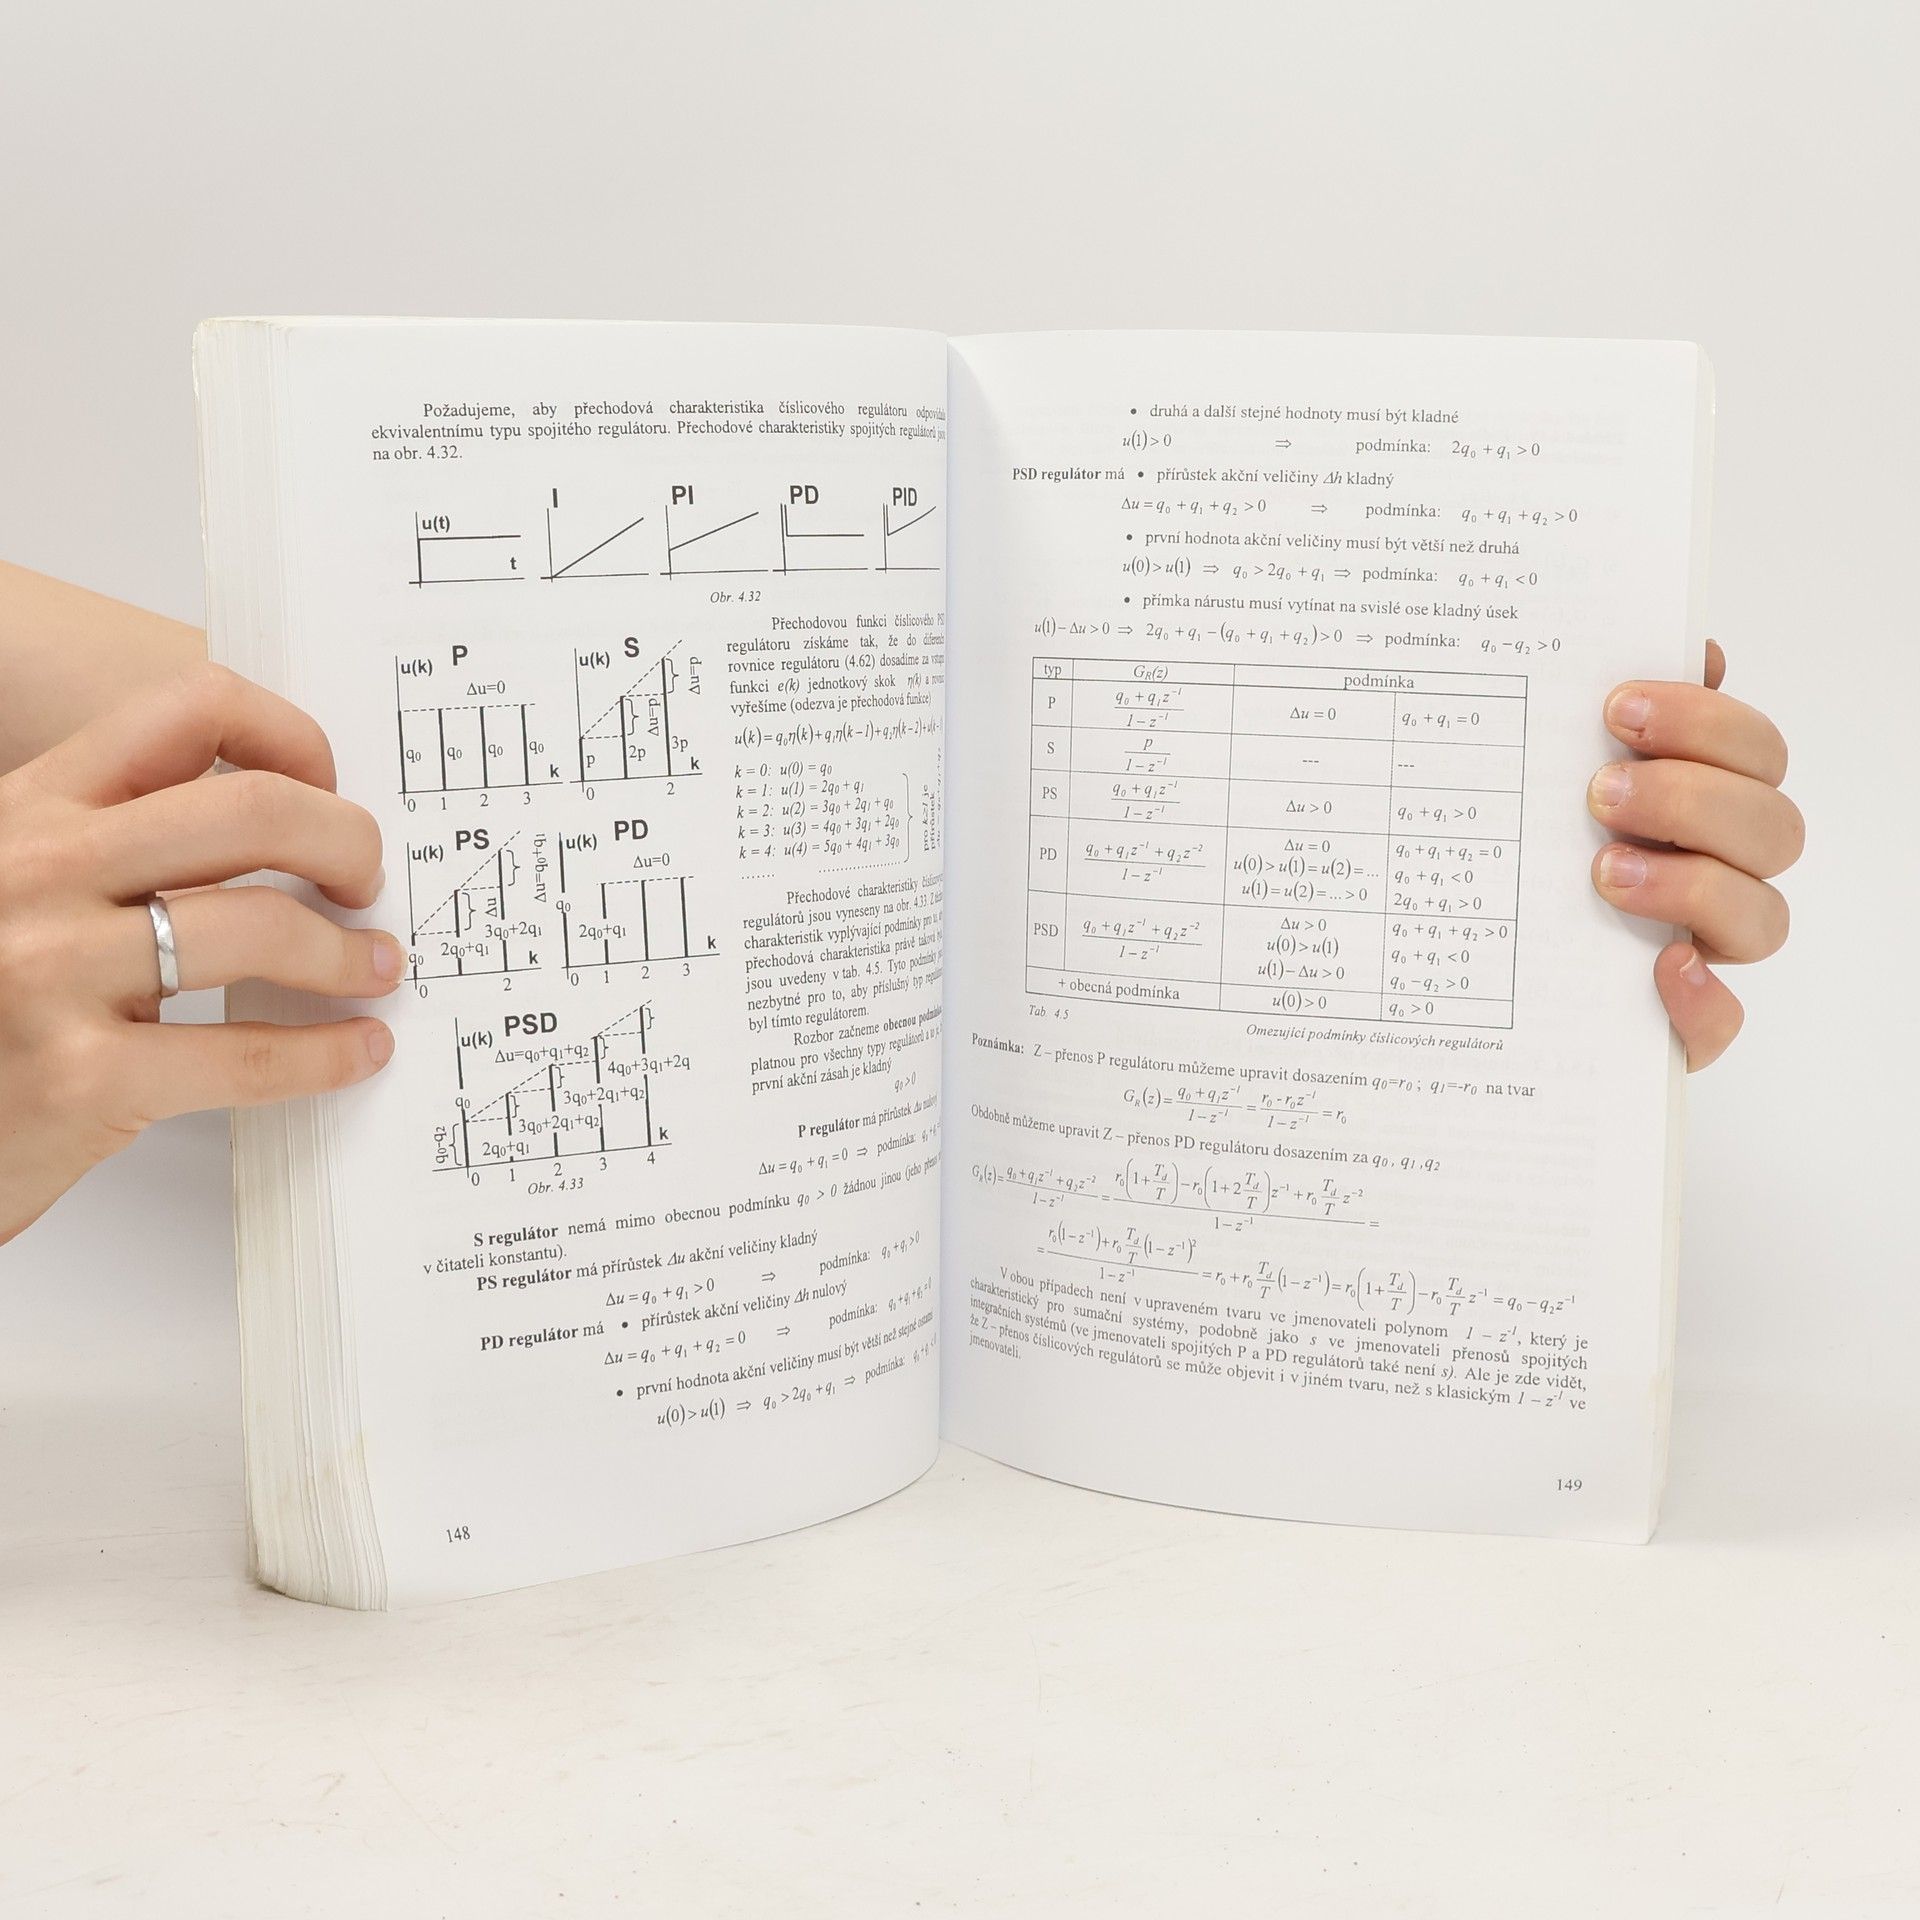 Požadujeme, aby přechodová charakteristika číslicového regulátoru
ekvivalentnímu typu spojitého regulátoru. Přechodové charakteristiky spojitých regulátorů
na obr. 4.32.
u(t)
t
I
PI
PD
PID
Obr. 4.32
u(k) P
Δu=0
q₀ q₀ q₀ q₀ k
0 1 2 3
u(k) S
Δu=p
Δu=p
p 2p 3p k
0 2
u(k) PS
Δu=q₀+q₁
Δu
3q₀+2q₁
2q₀+q₁
q₀ k
0 2
u(k) PD
Δu=0
q₀
2q₀+q₁
k
0 1 2 3
u(k) PSD
Δu=q₀+q₁+q₂
4q₀+3q₁+2q
q₀
3q₀+2q₁+q₂
3q₀+2q₁+q₂
q₀-q₂
2q₀+q₁
k
0 1 2 3 4
Obr. 4.33
Přechodovou funkci číslicového
regulátoru získáme tak, že do
rovnice regulátoru (4.62) dosadíme za
funkci e(k) jednotkový skok η(k) a
vyřešíme (odezva je přechodová funkce)
u(k) = q₀η(k)+q₁η(k−1)+q₂η(k−2)+u(k−1)
k = 0: u(0) = q₀
k = 1: u(1) = 2q₀ + q₁
k = 2: u(2) = 3q₀ + 2q₁ + q₀
k = 3: u(3) = 4q₀ + 3q₁ + 2q₀
k = 4: u(4) = 5q₀ + 4q₁ + 3q₀
....... .....................
Přechodové charakteristiky
regulátorů jsou vyneseny na obr. 4.33. Z
charakteristik vyplývající podmínky pro
přechodová charakteristika právě taková
jsou uvedeny v tab. 4.5. Tyto podmínky
nezbytné pro to, aby příslušný typ
byl tímto regulátorem.
Rozbor začneme obecnou
platnou pro všechny typy regulátorů a to
první akční zásah je kladný
q₀ > 0
P regulátor má přírůstek Δu nulový
Δu = q₀ + q₁ = 0 ⇒ podmínka:
S regulátor nemá mimo obecnou podmínku q₀ > 0 žádnou jinou (jeho
v čitateli konstantu).
PS regulátor má přírůstek Δu akční veličiny kladný
Δu = q₀ + q₁ > 0 ⇒ podmínka: q₀ + q₁ > 0
PD regulátor má • přírůstek akční veličiny Δh nulový
Δu = q₀ + q₁ + q₂ = 0 ⇒ podmínka: q₀ + q₁ + q₂ = 0
• první hodnota akční veličiny musí být větší než stejné
u(0) > u(1) ⇒ q₀ > 2q₀ + q₁ ⇒ podmínka:
148
• druhá a další stejné hodnoty musí být kladné
u(1) > 0 ⇒ podmínka: 2q₀ + q₁ > 0
PSD regulátor má • přírůstek akční veličiny Δh kladný
Δu = q₀ + q₁ + q₂ > 0 ⇒ podmínka: q₀ + q₁ + q₂ > 0
• první hodnota akční veličiny musí být větší než druhá
u(0) > u(1) ⇒ q₀ > 2q₀ + q₁ ⇒ podmínka: q₀ + q₁ < 0
• přímka nárustu musí vytínat na svislé ose kladný úsek
u(1) − Δu > 0 ⇒ 2q₀ + q₁ − (q₀ + q₁ + q₂) > 0 ⇒ podmínka: q₀ − q₂ > 0
typ G_R(z) podmínka
P (q₀ + q₁z⁻¹)/(1 − z⁻¹) Δu = 0 q₀ + q₁ = 0
S p/(1 − z⁻¹) --- ---
PS (q₀ + q₁z⁻¹)/(1 − z⁻¹) Δu > 0 q₀ + q₁ > 0
PD (q₀ + q₁z⁻¹ + q₂z⁻²)/(1 − z⁻¹) Δu = 0 q₀ + q₁ + q₂ = 0
u(0) > u(1) = u(2) = ... q₀ + q₁ < 0
u(1) = u(2) = ... > 0 2q₀ + q₁ > 0
PSD (q₀ + q₁z⁻¹ + q₂z⁻²)/(1 − z⁻¹) Δu > 0 q₀ + q₁ + q₂ > 0
u(0) > u(1) q₀ + q₁ < 0
u(1) − Δu > 0 q₀ − q₂ > 0
+ obecná podmínka u(0) > 0 q₀ > 0
Tab. 4.5 Omezující podmínky číslicových regulátorů
Poznámka: Z – přenos P regulátoru můžeme upravit dosazením q₀=r₀ ; q₁=-r₀ na tvar
G_R(z) = (q₀ + q₁z⁻¹)/(1 − z⁻¹) = (r₀ - r₀z⁻¹)/(1 − z⁻¹) = r₀
Obdobně můžeme upravit Z – přenos PD regulátoru dosazením za q₀ , q₁ ,q₂
G_R(z) = (q₀ + q₁z⁻¹ + q₂z⁻²)/(1 − z⁻¹) = (r₀(1 + T_d/T) − r₀(1 + 2 T_d/T)z⁻¹ + r₀ T_d/T z⁻²)/(1 − z⁻¹) =
= (r₀(1 − z⁻¹) + r₀ T_d/T (1 − z⁻¹)²)/(1 − z⁻¹) = r₀ + r₀ T_d/T (1 − z⁻¹) = r₀(1 + T_d/T) − r₀ T_d/T z⁻¹ = q₀ − q₂z⁻¹
V obou případech není v upraveném tvaru ve jmenovateli polynom 1 – z⁻¹, který je
charakteristický pro sumační systémy, podobně jako s ve jmenovateli přenosů spojitých
integračních systémů (ve jmenovateli spojitých P a PD regulátorů také není s). Ale je zde vidět,
že Z – přenos číslicových regulátorů se může objevit i v jiném tvaru, než s klasickým 1 – z⁻¹ ve
jmenovateli.
149